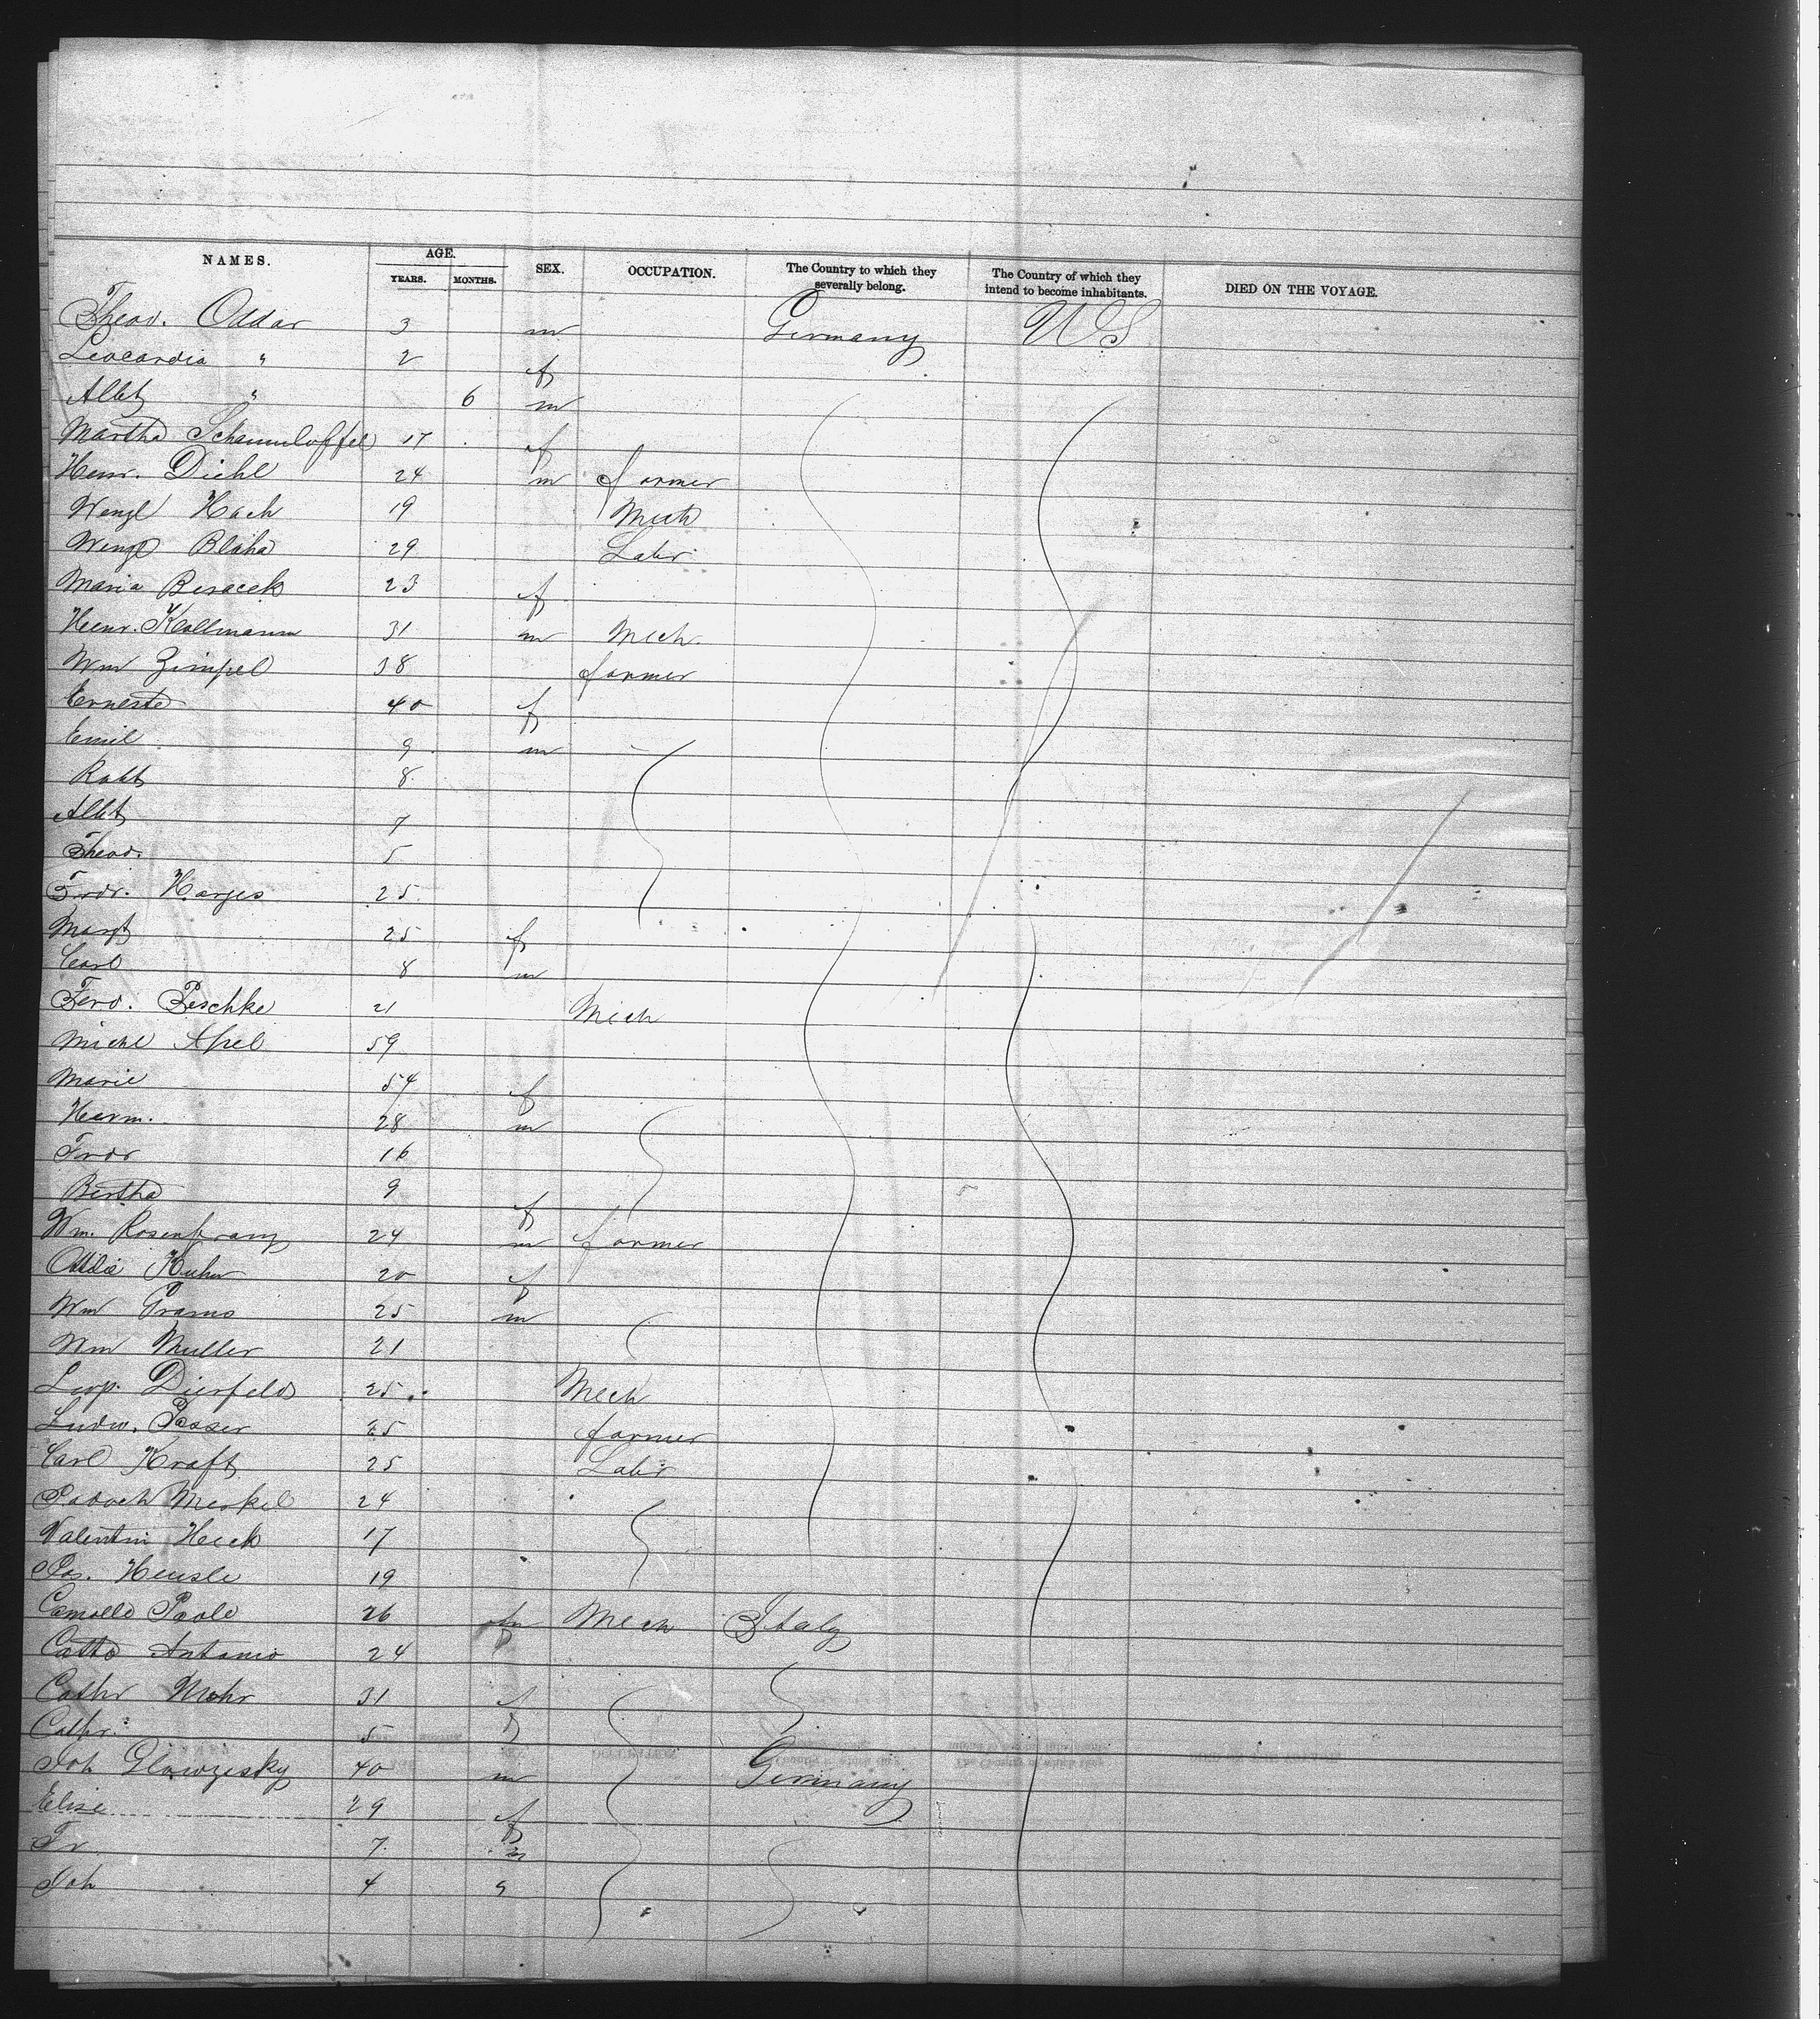 NAMES. AGE. YEARS. MONTHS. SEX. OCCUPATION. The Country to which they severally belong. The Country of which they intend to become inhabitants. DIED ON THE VOYAGE.
Theod. Oddar 3 m Germany US
Leocardia " 2 f
Albt " 6 m
Martha 17 f
Henr. Diehl 24 m farmer
Wenzl Hach 19 Mech
Wenzl Blaha 29 Labr
Maria Beracek 23 f
Henr. Kollmann 31 m Mech.
Wm Zimpel 38 farmer
Ernestd 40 f
Emil 9 m
Robt 8
Albt 7
Theod. 5
Frdr. Harjes 25
Margt 25 f
Carl 8 m
Ferd. Peschke 21 Mech
Michl Apel 59
Marie 54 f
Herm. 28 m
Frdr 16
Bertha 9 f
Wm. Rosenkranz 24 m farmer
Kuhn 20 f
Wm Pramo 25 m
Wm Muller 21
Leop. Dierfeld 25 Mech
Ludw. Posser 25 farmer
Carl Kraft 25 Labr
Merkel 24
Valentin Heck 17
Jos. Heusle 19
Camollo Paolo 26 m Mech Italy
Catto Antonio 24
Cathr Mohr 31 f
Cathr. 5 f
Joh Glowzesky 40 m Germany
Elise 29 f
Fr 7 m
Joh 4 "